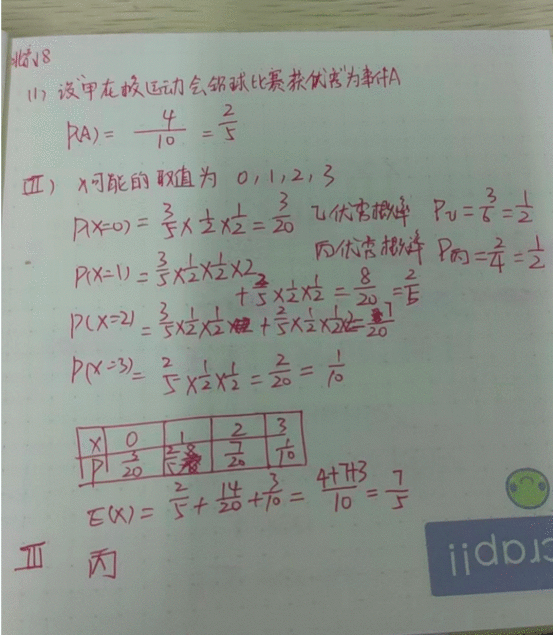 北京18
(1) 设"甲在校运动会铅球比赛获优秀"为事件A
P(A)= 4/10 = 2/5
(II) X可能的取值为 0,1,2,3
P(X=0)= 3/5 × 1/2 × 1/2 = 3/20 乙优秀概率 P乙 = 3/6 = 1/2
丙优秀概率 P丙 = 2/4 = 1/2
P(X=1)= 3/5 × 1/2 × 1/2 × 2
+ 2/5 × 1/2 × 1/2 = 8/20 = 2/5
P(X=2) = 3/5 × 1/2 × 1/2 + 2/5 × 1/2 × 1/2 × 2 = 7/20
P(X=3) = 2/5 × 1/2 × 1/2 = 2/20 = 1/10
X 0 1 2 3
P 3/20 2/5 7/20 1/10
E(X) = 2/5 + 14/20 + 3/10 = 4+7+3/10 = 7/5
III 丙